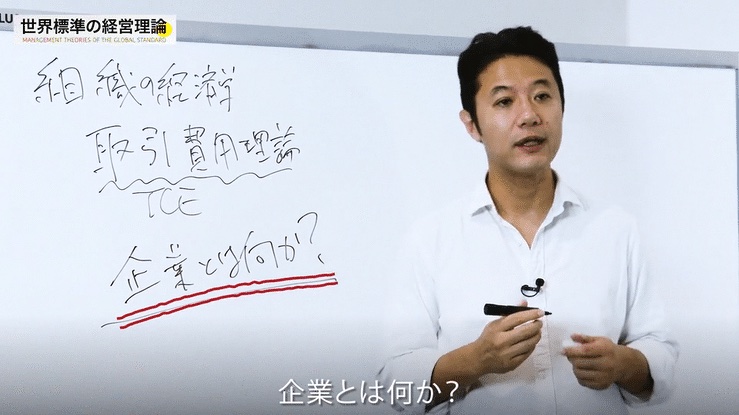 LU
世界標準の経営理論
MANAGEMENT THEORIES OF THE GLOBAL STANDARD
組織の経済学
取引費用理論
TCE
企業とは何か?
企業とは何か?